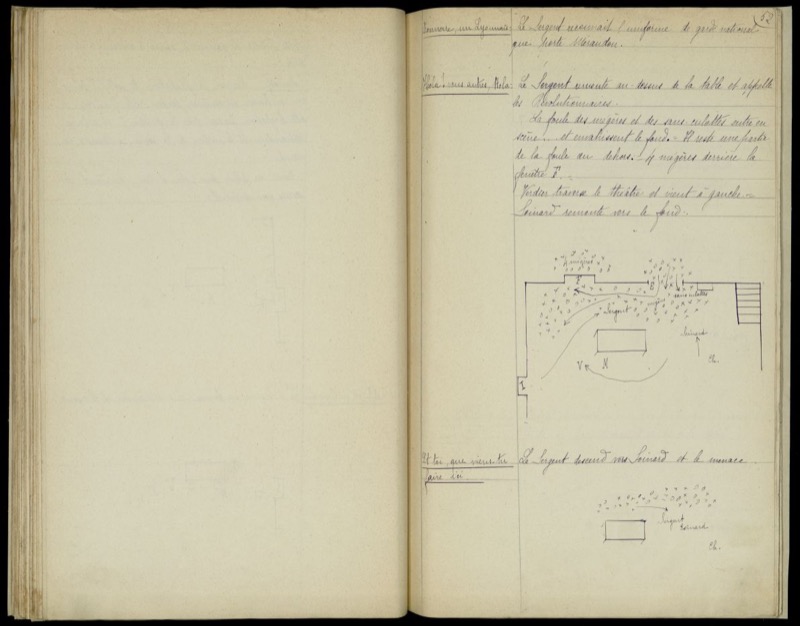 52
Le Sergent reconnait l'uniforme de garde national
que porte Marandon.
Hola ! vous autres, Hola
Le Sergent remonte au dessus de la table et appelle
les Révolutionnaires.
La foule des mégères et des sans culottes entre en
scène .. et envahissent le fond. - Il reste une partie
de la foule au dehors. - 4 mégères derrière la
fenêtre F. -
traverse le théâtre et vient à gauche. -
Loinard remonte vers le fond.
4 mégères
F
B
sans culottes
Sergent
Loinard
V
X
Ch.
I
Et toi, que viens-tu
faire ici
Le Sergent descend vers Loinard et le menace.
Sergent
Loinard
Ch.